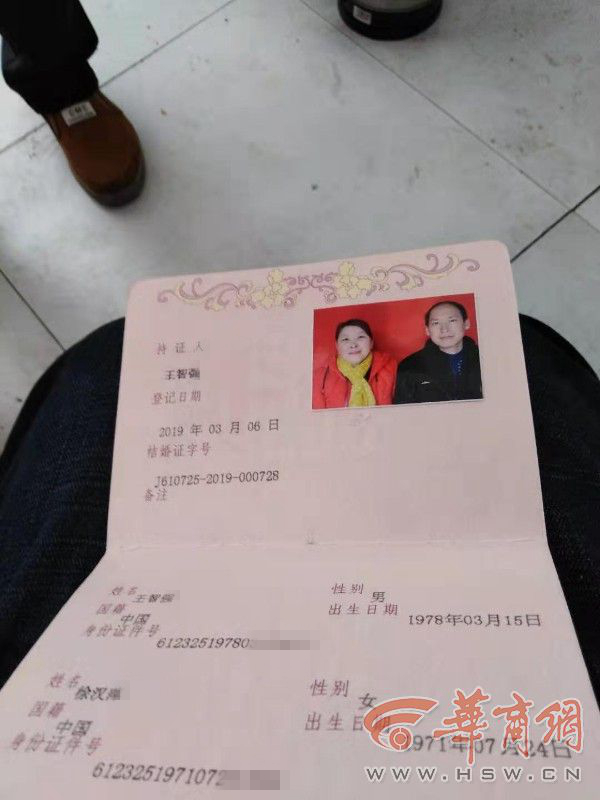 持证人
王智强
登记日期
2019 年 03 月 06 日
结婚证字号
J610725-2019-000728
备注
姓名 王智强 性别 男
国籍 中国 出生日期 1978年03月15日
身份证件号 6123251978
姓名 徐汉 性别 女
国籍 中国 出生日期 1971年07月24日
身份证件号 6123251971072
华商网
WWW.HSW.CN